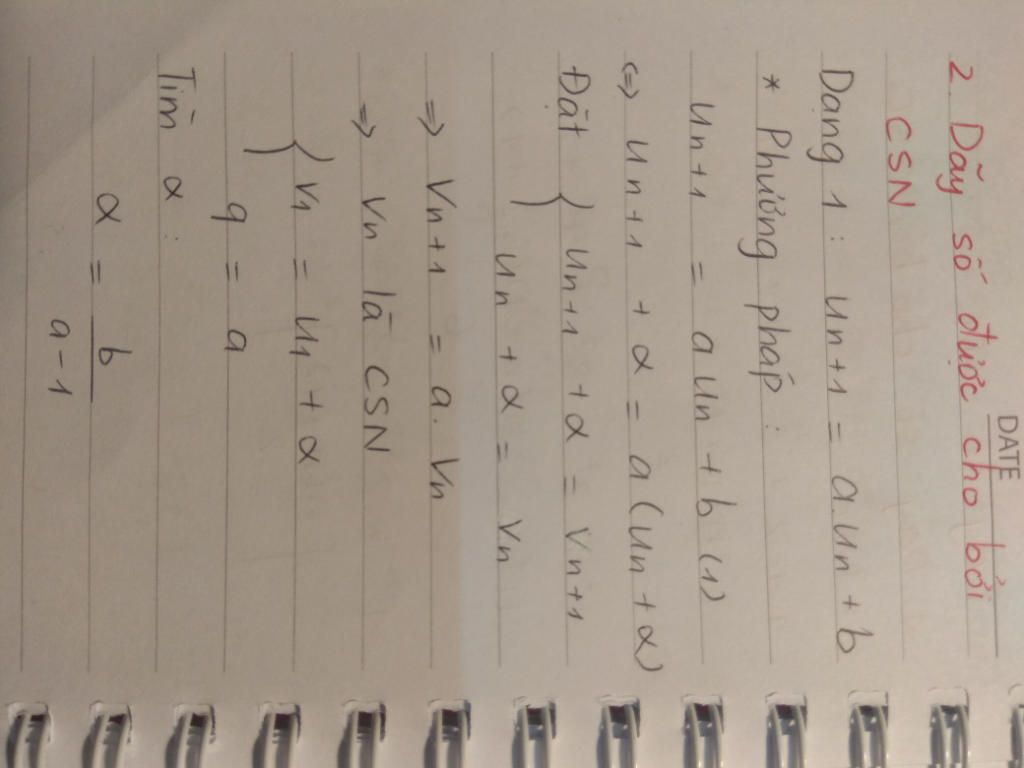 DATE
2. Dãy số được cho bởi
CSN
Dạng 1 : un+1 = a.un + b
* Phương pháp :
un+1 = a un + b (1)
<=> un+1 + α = a (un + α)
Đặt { un+1 + α = vn+1
un + α = vn
=> vn+1 = a. vn
=> vn là CSN
{ v1 = u1 + α
q = a
Tìm α :
α = b / a-1